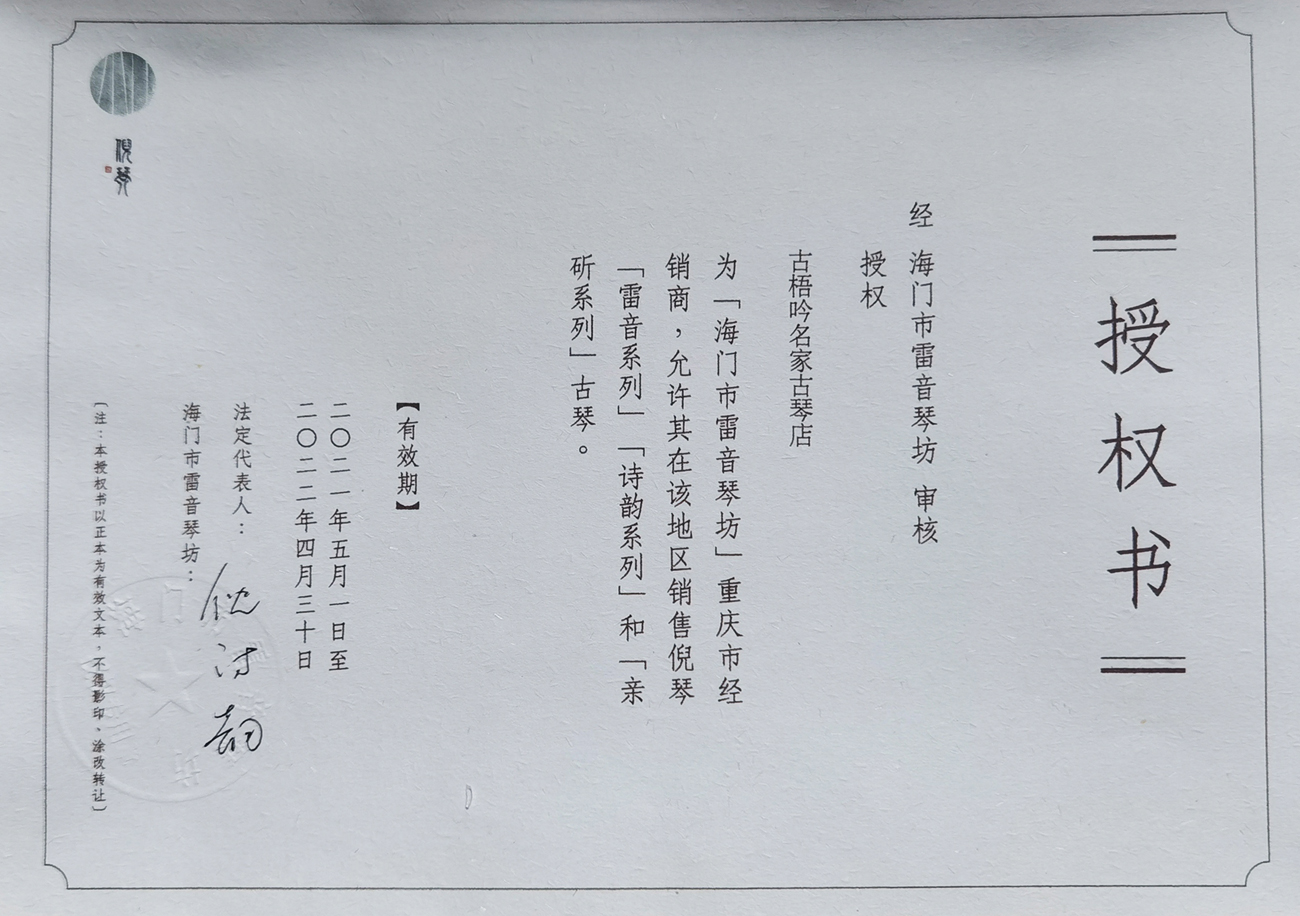 授权书
经 海门市雷音琴坊 审核
授权
古梧吟名家古琴店
为「海门市雷音琴坊」重庆市经
销商，允许其在该地区销售倪琴
「雷音系列」「诗韵系列」和「亲
斫系列」古琴。
【有效期】
二〇二一年五月一日至
二〇二二年四月三十日
法定代表人：
倪诗韵
海门市雷音琴坊：
〔注：本授权书以正本为有效文本，不得影印、涂改转让〕
倪琴